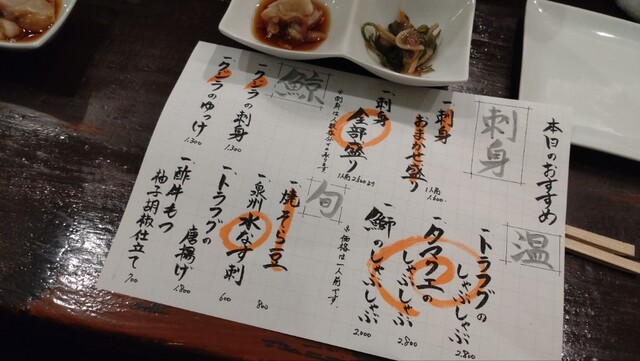 本日のおすすめ
刺身
一、刺身
おまかせ盛り
1人前
1,600-
一、刺身
全部盛り
1人前 2,600より
鯨
一、クジラの刺身
1,300
一、クジラのゆっけ
1,300
温
一、トラフグの
しゃぶしゃぶ
2,800
一、タマクエの
しゃぶしゃぶ
2,800
一、鰤の
しゃぶしゃぶ
2,000
※価格は一人前です。
旬
一、焼そら豆
800
一、泉州水なす刺
600
一、トラフグの
唐揚げ
1,800
一、酢牛もつ
柚子胡椒仕立て
700